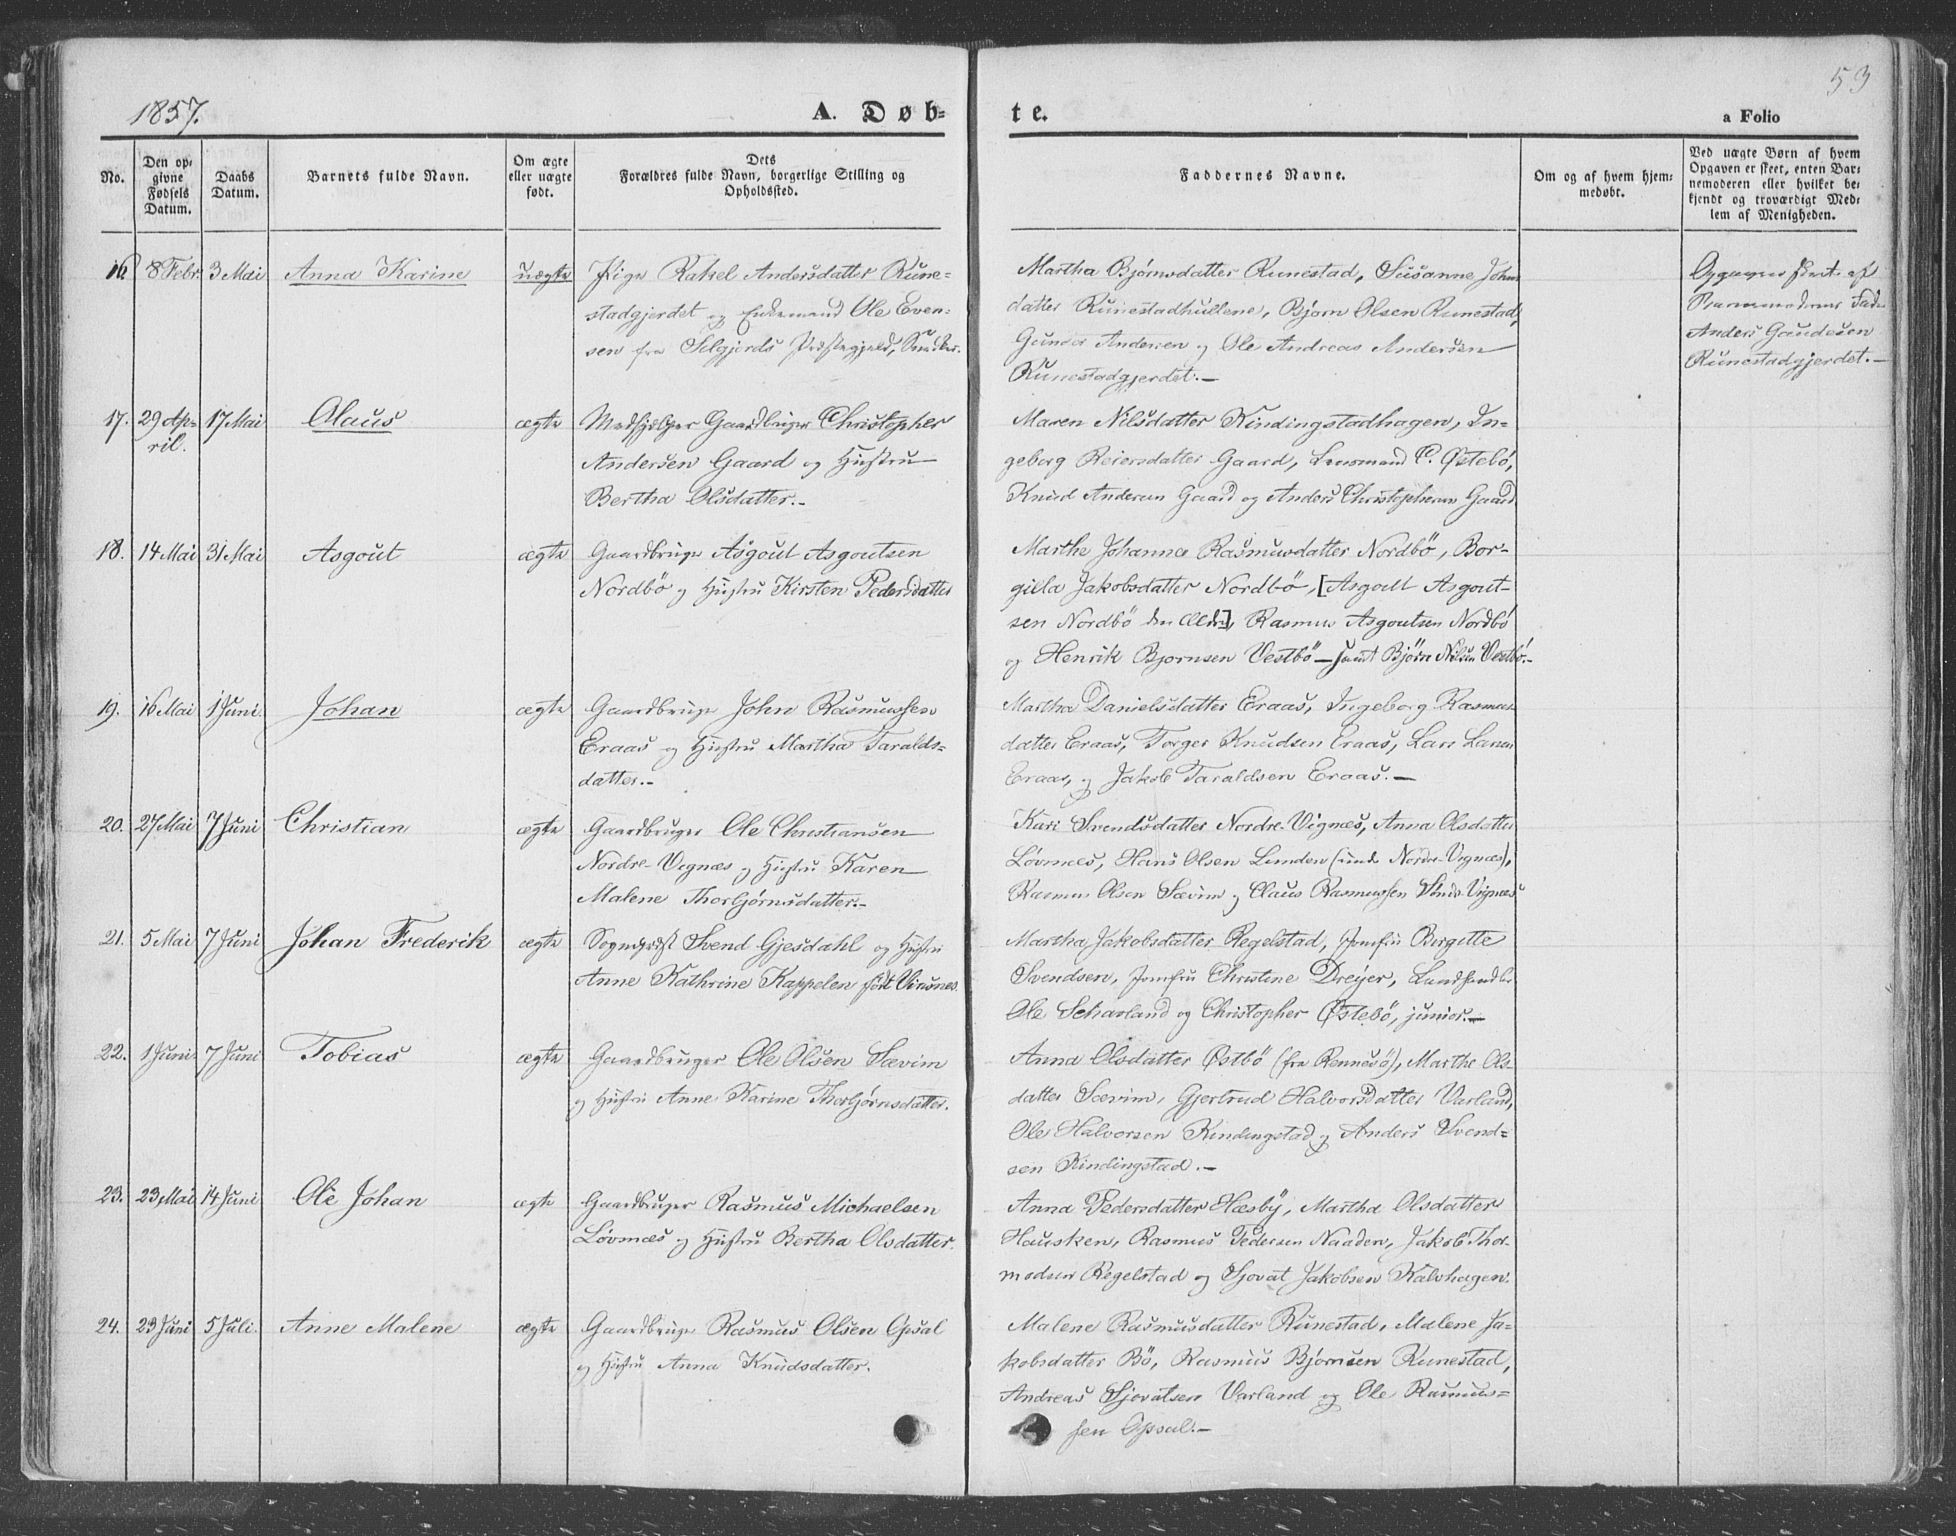 53
1857.
A. Døb-
te.
a Folio
No.
Den op-
givne
Fødsels
Datum.
Daabs
Datum.
Barnets fulde Navn.
Om ægte
eller uægte
født.
Dets
Forældres fulde Navn, borgerlige Stilling og
Opholdssted.
Faddernes Navne.
Om og af hvem hjem-
medøbt.
Ved uægte Børn af hvem
Opgaven er skeet, enten Bar-
nemoderen eller hvilket be-
kjendt og troværdigt Med-
lem af Menigheden.
16 8 Febr. 3 Mai Anna Karine uægte Pige Rakel Andersdatter Rune-
stadgjerdet og Enkemand Ole Even-
sen fra Selgjords Præstegjeld, Snedker.
Martha Bjørnsdatter Runestad, Susanne Johns
datter Runestadhullene, Bjørn Olsen Runestad,
Gunder Andersen og Ole Andreas Andersen
Runestadgjerdet.-
Opgaven skeet af
Barnemoderens Fader
Anders Gaudesen
Runestadgjerdet.-
17. 29 Ap- 17 Mai Olaus ægte Medhjælper Gaardbruger Christopher
ril.
Andersen Gaard og Hustru
Bertha Olsdatter.-
Maren Nilsdatter Kindingstadhagen, In-
geborg Reiersdatter Gaard, Lensmand C. Østebö,
Knud Andersen Gaard og Anders Christophersen Gaard.
18. 14 Mai 31 Mai Asgout ægte Gaardbruger Asgout Asgoutsen
Nordbö og Hustru Kirsten Pedersdatter
Marthe Johanna Rasmusdatter Nordbö, Bor-
gilla Jakobsdatter Nordbö, [Asgout Asgout-
sen Nordbö den Ældre], Rasmus Asgoutsen Nordbö
og Henrik Bjornsen Vestbö - samt Bjørn Nilsen Vestbö.-
19. 16 Mai 1 Juni Johan ægte Gaardbruger John Rasmussen
Eraas og Hustru Martha Taralds-
datter.-
Martha Danielsdatter Eraas, Ingeborg Rasmus
datter Eraas, Torger Knudsen Eraas, Lars Larsen
Eraas, og Jakob Taraldsen Eraas.-
20. 27 Mai 7 Juni Christian ægte Gaardbruger Ole Christiansen
Nordre-Vignæs og Hustru Karen
Malene Thorbjørnsdatter.-
Kari Svendsdatter Nordre-Vignæs, Anna Olsdatter
Løvnæs, Hans Olsen Lunden (unde Nordre-Vignæs),
Rasmus Olsen Sævim og Claus Rasmussen Söndre Vignæs
21. 5 Mai 7 Juni Johan Frederik ægte Sognepræst Svend Gjesdahl og Hustru
Anne Kathrine Kappelen født Vinsnes.
Martha Jakobsdatter Regelstad, Jomfru Birgitte
Svendsen, Jomfru Christine Dreyer, Landhandler
Ole Schavland og Christopher Østebö, junior.-
22. 1 Juni 7 Juni Tobias ægte Gaardbruger Ole Olsen Sævim
og Hustru Anne Karine Thorbjørnsdatter.
Anna Olsdatter Østbö (fra Rennesö), Marthe Ols-
datter Sævim, Gjertrud Halvorsdatter Varland,
Ole Halvorsen Kindingstad og Anders Svend-
sen Kindingstad.-
23. 23 Mai 14 Juni Ole Johan ægte Gaardbruger Rasmus Michaelsen
Løvnæs og Hustru Bertha Olsdatter.
Anna Pedersdatter Hæsby, Martha Olsdatter
Hausken, Rasmus Pedersen Naaden, Jakob Thor-
modsen Regelstad og Sjovat Jakobsen Kalvhagen.
24. 23 Juni 5 Juli. Anne Malene ægte Gaardbruger Rasmus Olsen Opsal
og Hustru Anna Knudsdatter.
Malene Rasmusdatter Runestad, Malene Ja-
kobsdatter Bö, Rasmus Bjornsen Runestad,
Andreas Sjovatsen Varland og Ole Rasmus-
sen Opsal.-